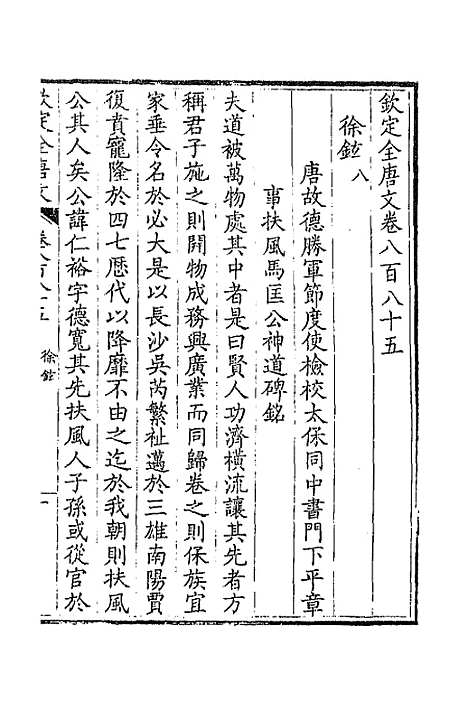 欽定全唐文卷八百八十五
徐鉉八
唐故德勝軍節度使檢校太保同中書門下平章
事扶風馬匡公神道碑銘
夫道被萬物處其中者是曰賢人功濟橫流讓其先者方
稱君子施之則開物成務興廣業而同歸卷之則保族宜
家垂令名於必大是以長沙吳芮繁祉邁於三雄南陽賈
復賁寵隆於四七歷代以降靡不由之迄於我朝則扶風
公其人矣公諱仁裕字德寬其先扶風人子孫或從官於
欽定全唐文
卷八百八十五
徐鉉
一